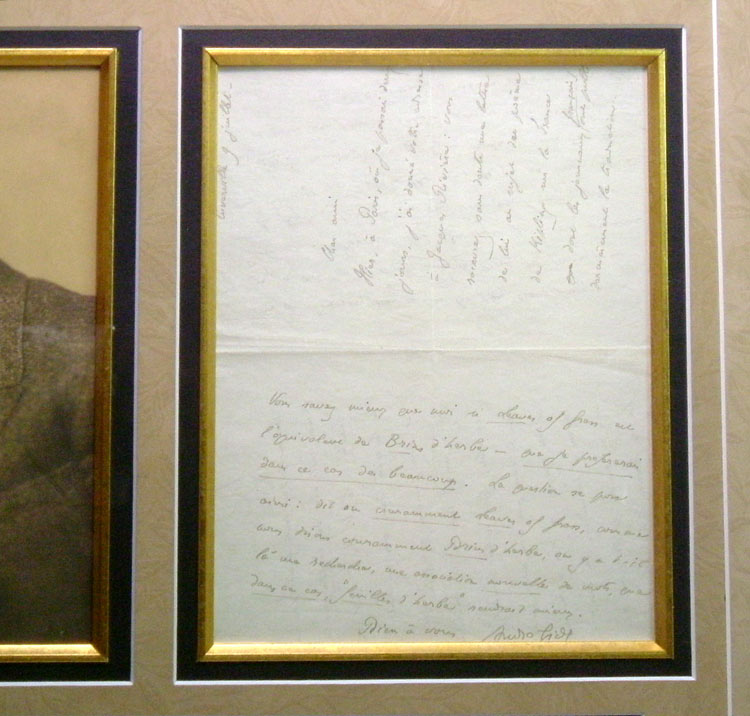 Cuverville 9 juillet.
Cher ami
Hier, à Paris, où je passai deux
jours, j'ai donné votre adresse
à Jacques Rivière : vous
recevrez sans doute une lettre
de lui au sujet du poème
de Kipling sur la France
dont les journaux français
dernièrement la traduction.
Vous savez mieux que moi si Leaves of grass est
l'équivalent de Brins d'herbe — que je préférerais
dans ce cas de beaucoup. La question se pose
ainsi : dit on couramment Leaves of grass, comme
nous disons couramment Brins d'herbe, ou y a-t-il
là une recherche, une association nouvelle de mots, que
dans ce cas, "feuilles d'herbe" rendrait mieux.
Bien à vous André Gide